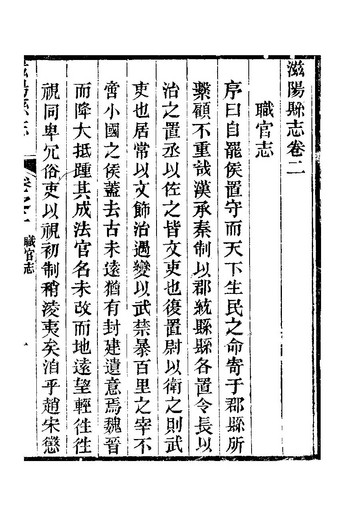 滋陽縣志卷二
職官志
序曰自罷侯置守而天下生民之命寄于郡縣所
繫顧不重哉漢承秦制以郡統縣縣各置令長以
治之置丞以佐之皆文吏也復置尉以衛之則武
吏也居常以文飾治過變以武禁暴百里之宰不
啻小國之侯蓋去古未遠猶有封建遺意焉魏晉
而降大抵踵其成法官名未改而地遠望輕徃徃
視同卑冗俗吏以視初制稍淩夷矣洎乎趙宋懲
職官志
一